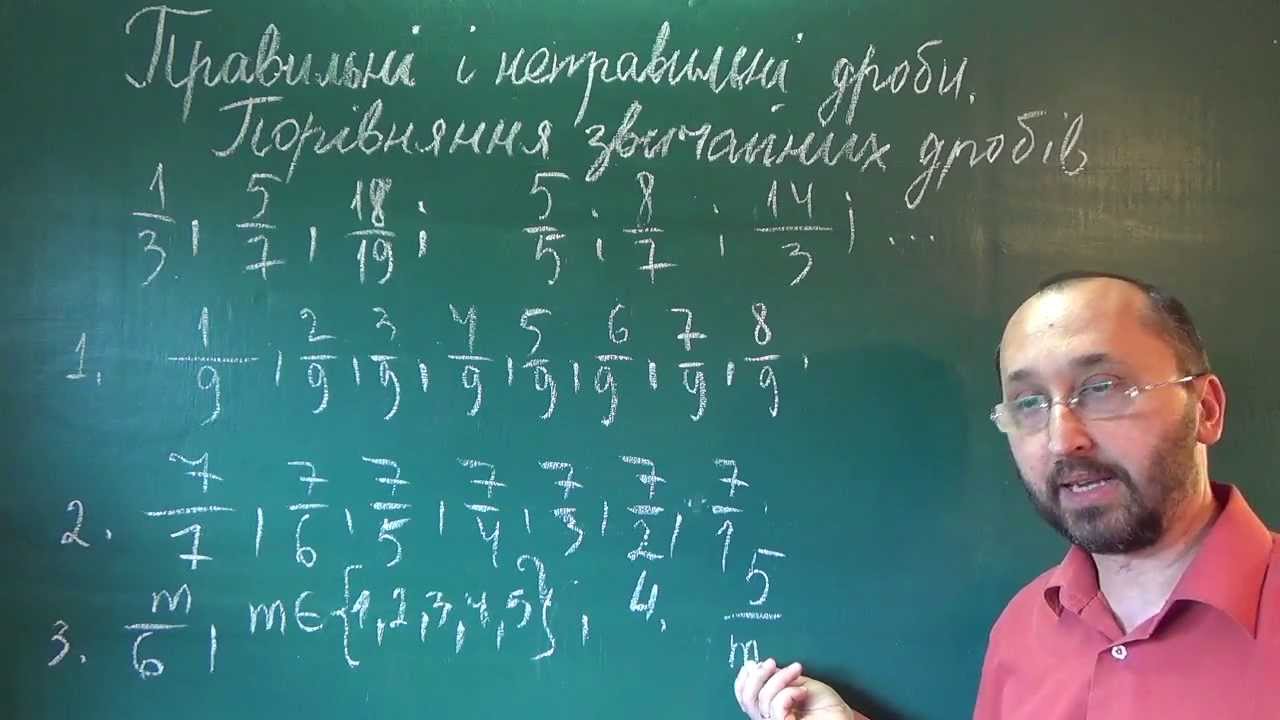 Правильні і неправильні дроби.
Порівняння звичайних дробів
1/3, 5/7, 18/19; 5/5; 8/7; 14/3; ...
1. 1/9, 2/9, 3/9, 4/9, 5/9, 6/9, 7/9, 8/9,
2. 7/7, 7/6, 7/5, 7/4, 7/3, 7/2, 7/1,
3. m/6, m∈{1,2,3,4,5}; 4. 5/m